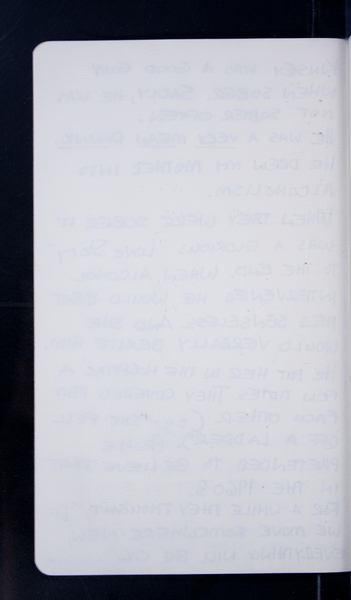 JENSEN WAS A GOOD GUY
WHEN SOBER. SADLY, HE WAS
NOT SOBER OFTEN.
HE WAS A VERY MEAN DRUNK.
HE DREW MY MOTHER INTO
ALCOHOLISM.
WHEN THEY WERE SOBER IT
WAS A GLORIOUS LOVE STORY
TO THE END. WHEN ALCOHOL
INTERVENED HE WOULD BEAT
HER SENSELESS. AND SHE
WOULD VERBALLY BERATE HIM.
HE PUT HER IN THE HOSPITAL A
FEW TIMES. THEY COVERED FOR
EACH OTHER. (SHE FELL
OFF A LADDER). PEOPLE
PRETENDED TO BELIEVE THAT
IN THE 1960'S.
FOR A WHILE THEY THOUGHT IF
WE MOVE SOMEWHERE NEW
EVERYTHING WILL BE OK